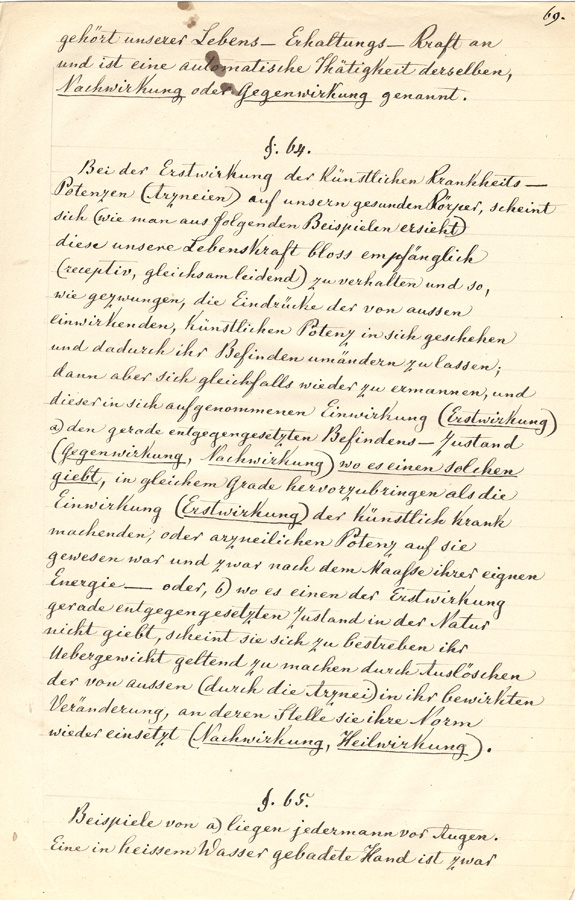 69.
gehört unserer Lebens– Erhaltungs– Kraft an
und ist eine automatische Thätigkeit derselben,
Nachwirkung oder Gegenwirkung genannt.
§. 64.
Bei der Erstwirkung der künstlichen Krankheits–
Potenzen (Arzneien) auf unsern gesunden Körper, scheint
sich (wie man aus folgenden Beispielen ersieht)
diese unsere Lebenskraft bloss empfänglich
(receptiv, gleichsam leidend) zu verhalten und so,
wie gezwungen, die Eindrücke der von aussen
einwirkenden, künstlichen Potenz in sich geschehen
und dadurch ihr Befinden umändern zu lassen;
dann aber sich gleichfalls wieder zu ermannen, und
dieser in sich aufgenommenen Einwirkung (Erstwirkung)
a) den gerade entgegengesetzten Befindens– Zustand
(Gegenwirkung, Nachwirkung) wo es einen solchen
giebt, in gleichem Grade hervorzubringen als die
Einwirkung (Erstwirkung) der künstlich krank
machenden, oder arzneilichen Potenz auf sie
gewesen war und zwar nach dem Maafse ihrer eignen
Energie — oder, b) wo es einen der Erstwirkung
gerade entgegengesetzten Zustand in der Natur
nicht giebt, scheint sie sich zu bestreben ihr
Uebergewicht geltend zu machen durch Auslöschen
der von aussen (durch die Arznei) in ihr bewirkten
Veränderung, an deren Stelle sie ihre Norm
wieder einsetzt (Nachwirkung, Heilwirkung).
§. 65.
Beispiele von a) liegen jedermann vor Augen.
Eine in heissem Wasser gebadete Hand ist zwar